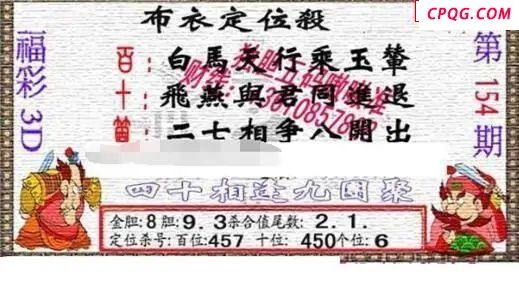 CPQG.COM
布衣定位殺
福彩3D
第154期
百:白馬天行乘玉輦
十:飛燕與君同進退
個:二七相爭八開出
四十相逢九團聚
金胆:8胆:9.3杀合值尾数:2.1.
定位杀号:百位:457 十位:450个位:6